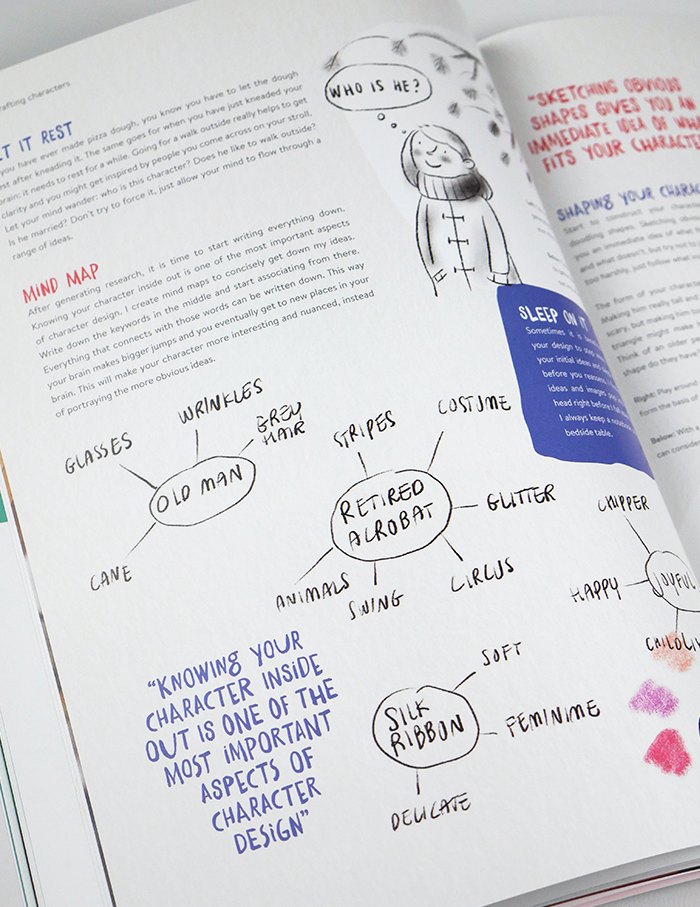 rafting characters
IT REST
you have ever made pizza dough, you know you have to let the dough
rest after kneading it. The same goes for when you have just kneaded your
brain: it needs to rest for a while. Going for a walk outside really helps to get
clarity and you might get inspired by people you come across on your stroll.
Let your mind wander: who is this character? Does he like to walk outside?
Is he married? Don't try to force it, just allow your mind to flow through a
range of ideas.
WHO IS HE?
MIND MAP
After generating research, it is time to start writing everything down.
Knowing your character inside out is one of the most important aspects
of character design. I create mind maps to concisely get down my ideas.
Write down the keywords in the middle and start associating from there.
Everything that connects with those words can be written down. This way
your brain makes bigger jumps and you eventually get to new places in your
brain. This will make your character more interesting and nuanced, instead
of portraying the more obvious ideas.
SLEEP ON IT
Sometimes it is
your design to step
your initial ideas and
before you reassess.
ideas and images
head right before I fall
I always keep a notebook
bedside table.
WRINKLES
GLASSES
GREY
HAIR
OLD MAN
CANE
STRIPES
COSTUME
RETIRED
ACROBAT
GLITTER
ANIMALS
SWING
CIRCUS
CHIPPER
HAPPY
JOYFUL
CHILDLI
"KNOWING YOUR
CHARACTER INSIDE
OUT IS ONE OF THE
MOST IMPORTANT
ASPECTS OF
CHARACTER
DESIGN"
SOFT
SILK
RIBBON
FEMININE
DELICATE
"SKETCHING OBVIOUS
SHAPES GIVES YOU AN
IMMEDIATE IDEA OF WHA
FITS YOUR CHARACTER
SHAPING YOUR CHARAC
Start to construct your characte
doodling shapes. Sketching obvio
you an immediate idea of what
and what doesn't, but try not to
too harshly, just follow what
The form of your characte
Making him really tall a
scary, but making him
triangle might make
Think of an older pe
shape do they ha
Right: Play aroun
form the basis of
Below: With a
can consider